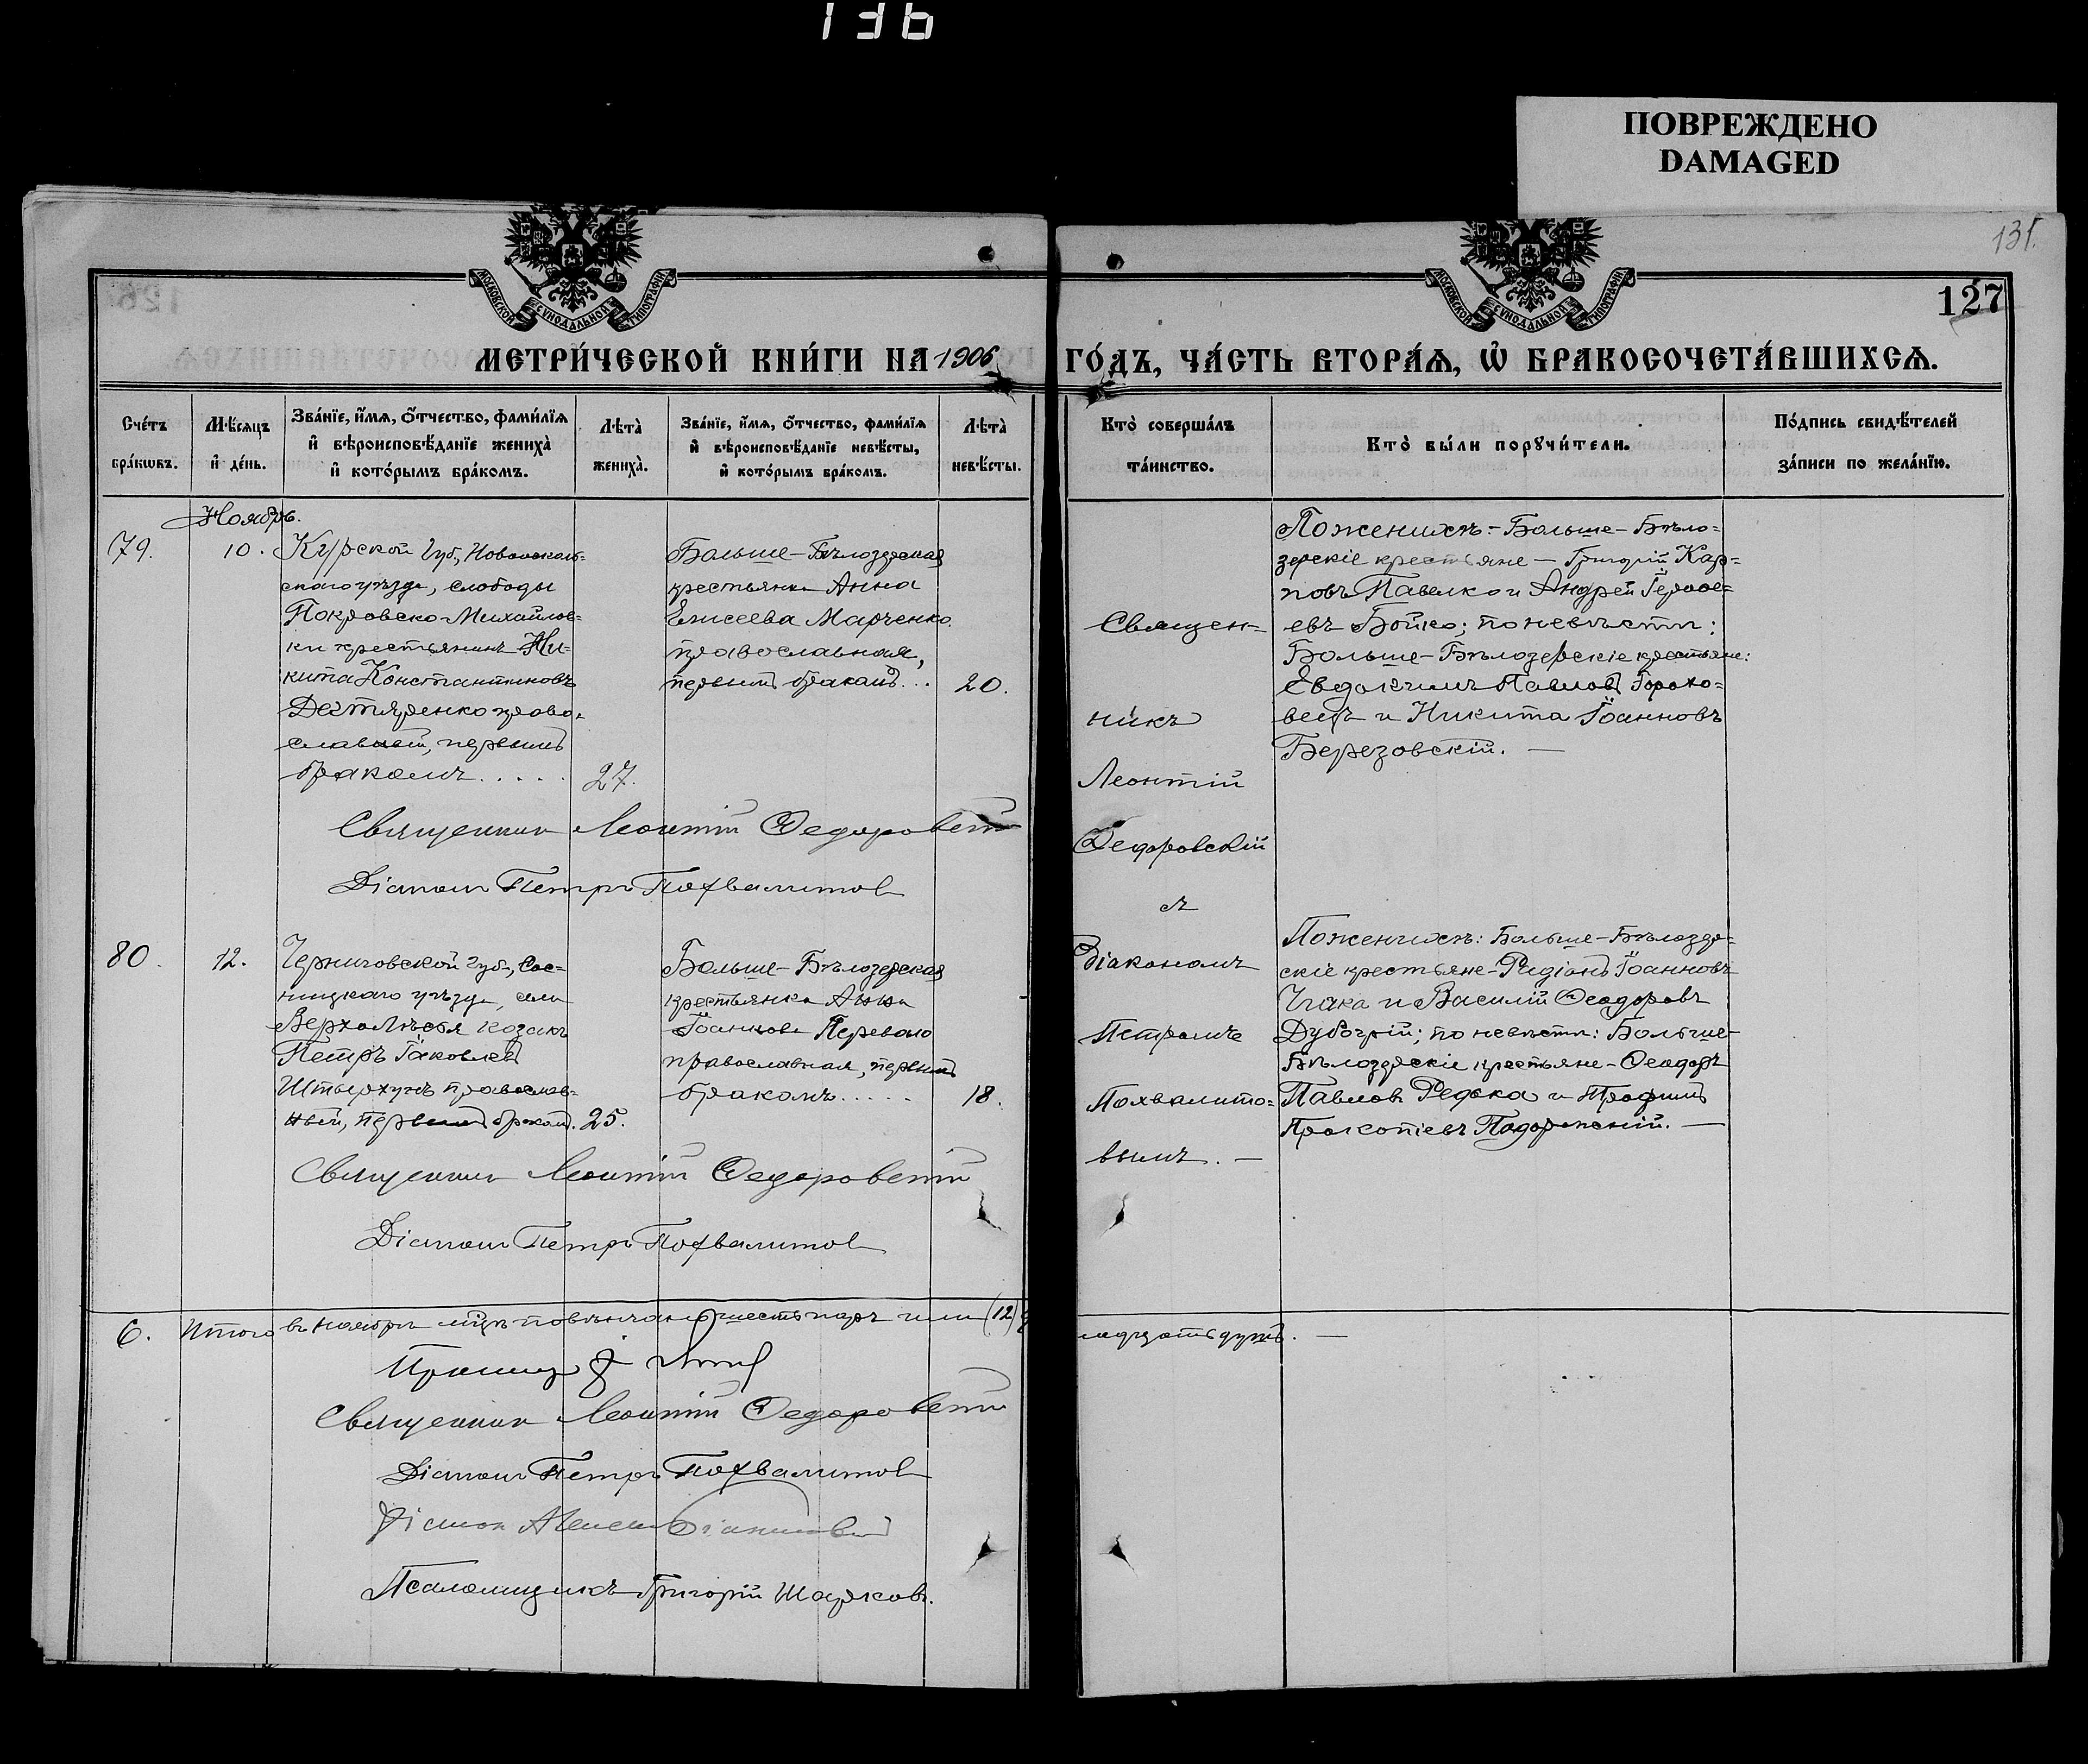 136
ПОВРЕЖДЕНО
DAMAGED
131.
127
МОСКОВСКОЙ СѴНОДАЛЬНОЙ ТИПОГРАФІИ
МОСКОВСКОЙ СѴНОДАЛЬНОЙ ТИПОГРАФІИ
МЕТРИ́ЧЕСКОЙ КНИ́ГИ НА 1906 ГО́ДЪ, ЧА́СТЬ ВТОРА́Ѧ, Ѡ҆ БРАКОСОЧЕТА́ВШИХСѦ.
Сче́тъ бра́кѡвъ.
М̾ѣсяцъ и҆ де́нь.
Зва́нїе, и҆́мѧ, ѻ҆́тчество, фами́лїѧ и҆ вѣроисповѣ́данїе жениха̀ и҆ кото́рымъ бра́комъ.
Лѣта̀ жениха̀.
Зва́нїе, и҆́мѧ, ѻ҆́тчество, фами́лїѧ и҆ вѣроисповѣ́данїе невѣ́сты, и҆ кото́рымъ бра́комъ.
Лѣта̀ невѣ́сты.
Кто̀ соверша́лъ та́инство.
Кто̀ бы́ли порꙋчи́тели.
По́дпись свидѣ́телей за́писи по жела́нїю.
Ноябрь.
79.
10.
Курской губ., Новооскольскаго уѣзда, слободы
Покровско-Михайлов-
ки крестьянинъ Ни-
кита Константиновъ
Дегтяренко право-
славный, первымъ
бракомъ.....
27.
Больше-Бѣлозерская
крестьянка Анна
Елисеева Марченко
православная,
первымъ бракомъ...
20.
Священ-
никъ
Леонтій
Федоровскій
съ
Діакономъ
Петромъ
Похвалито-
вымъ. —
По женихѣ: - Больше-Бѣло-
зерскіе крестьяне - Григорій Кар-
повъ Павелко и Андрей
евъ Бойко; по невѣстѣ:
Больше-Бѣлозерскіе крестьяне:
Евдокимъ Павловъ Горохо-
вецъ и Никита Іоанновъ
Березовскій. —
Священник Леонтій Федоровскій
Діаконъ Петръ Похвалитов
80.
12.
Черниговской губ., Сос-
ницкаго уѣзда, села
козакъ
Петръ Іаковлевъ
православ-
ный, первымъ браком.
25.
Больше-Бѣлозерская
крестьянка Анна
Іоаннова
православная, первымъ
бракомъ.....
18.
По женихѣ: Больше-Бѣлозер-
скіе крестьяне - Родіонъ Іоанновъ
и Василій Феодоровъ
по невѣстѣ: Больше-
Бѣлозерскіе крестьяне - Феодоръ
Павловъ Редька и Трофимъ
Прокопіевъ Подорожній. —
Священник Леонтій Федоровскій
Діаконъ Петръ Похвалитов
6.
Итого въ ноябрѣ мцѣ повѣнчано шесть паръ или (12) двенадцать душъ. —
Священник Леонтій Федоровскій
Діаконъ Петръ Похвалитов
Псаломщикъ Григорій Шарковъ.